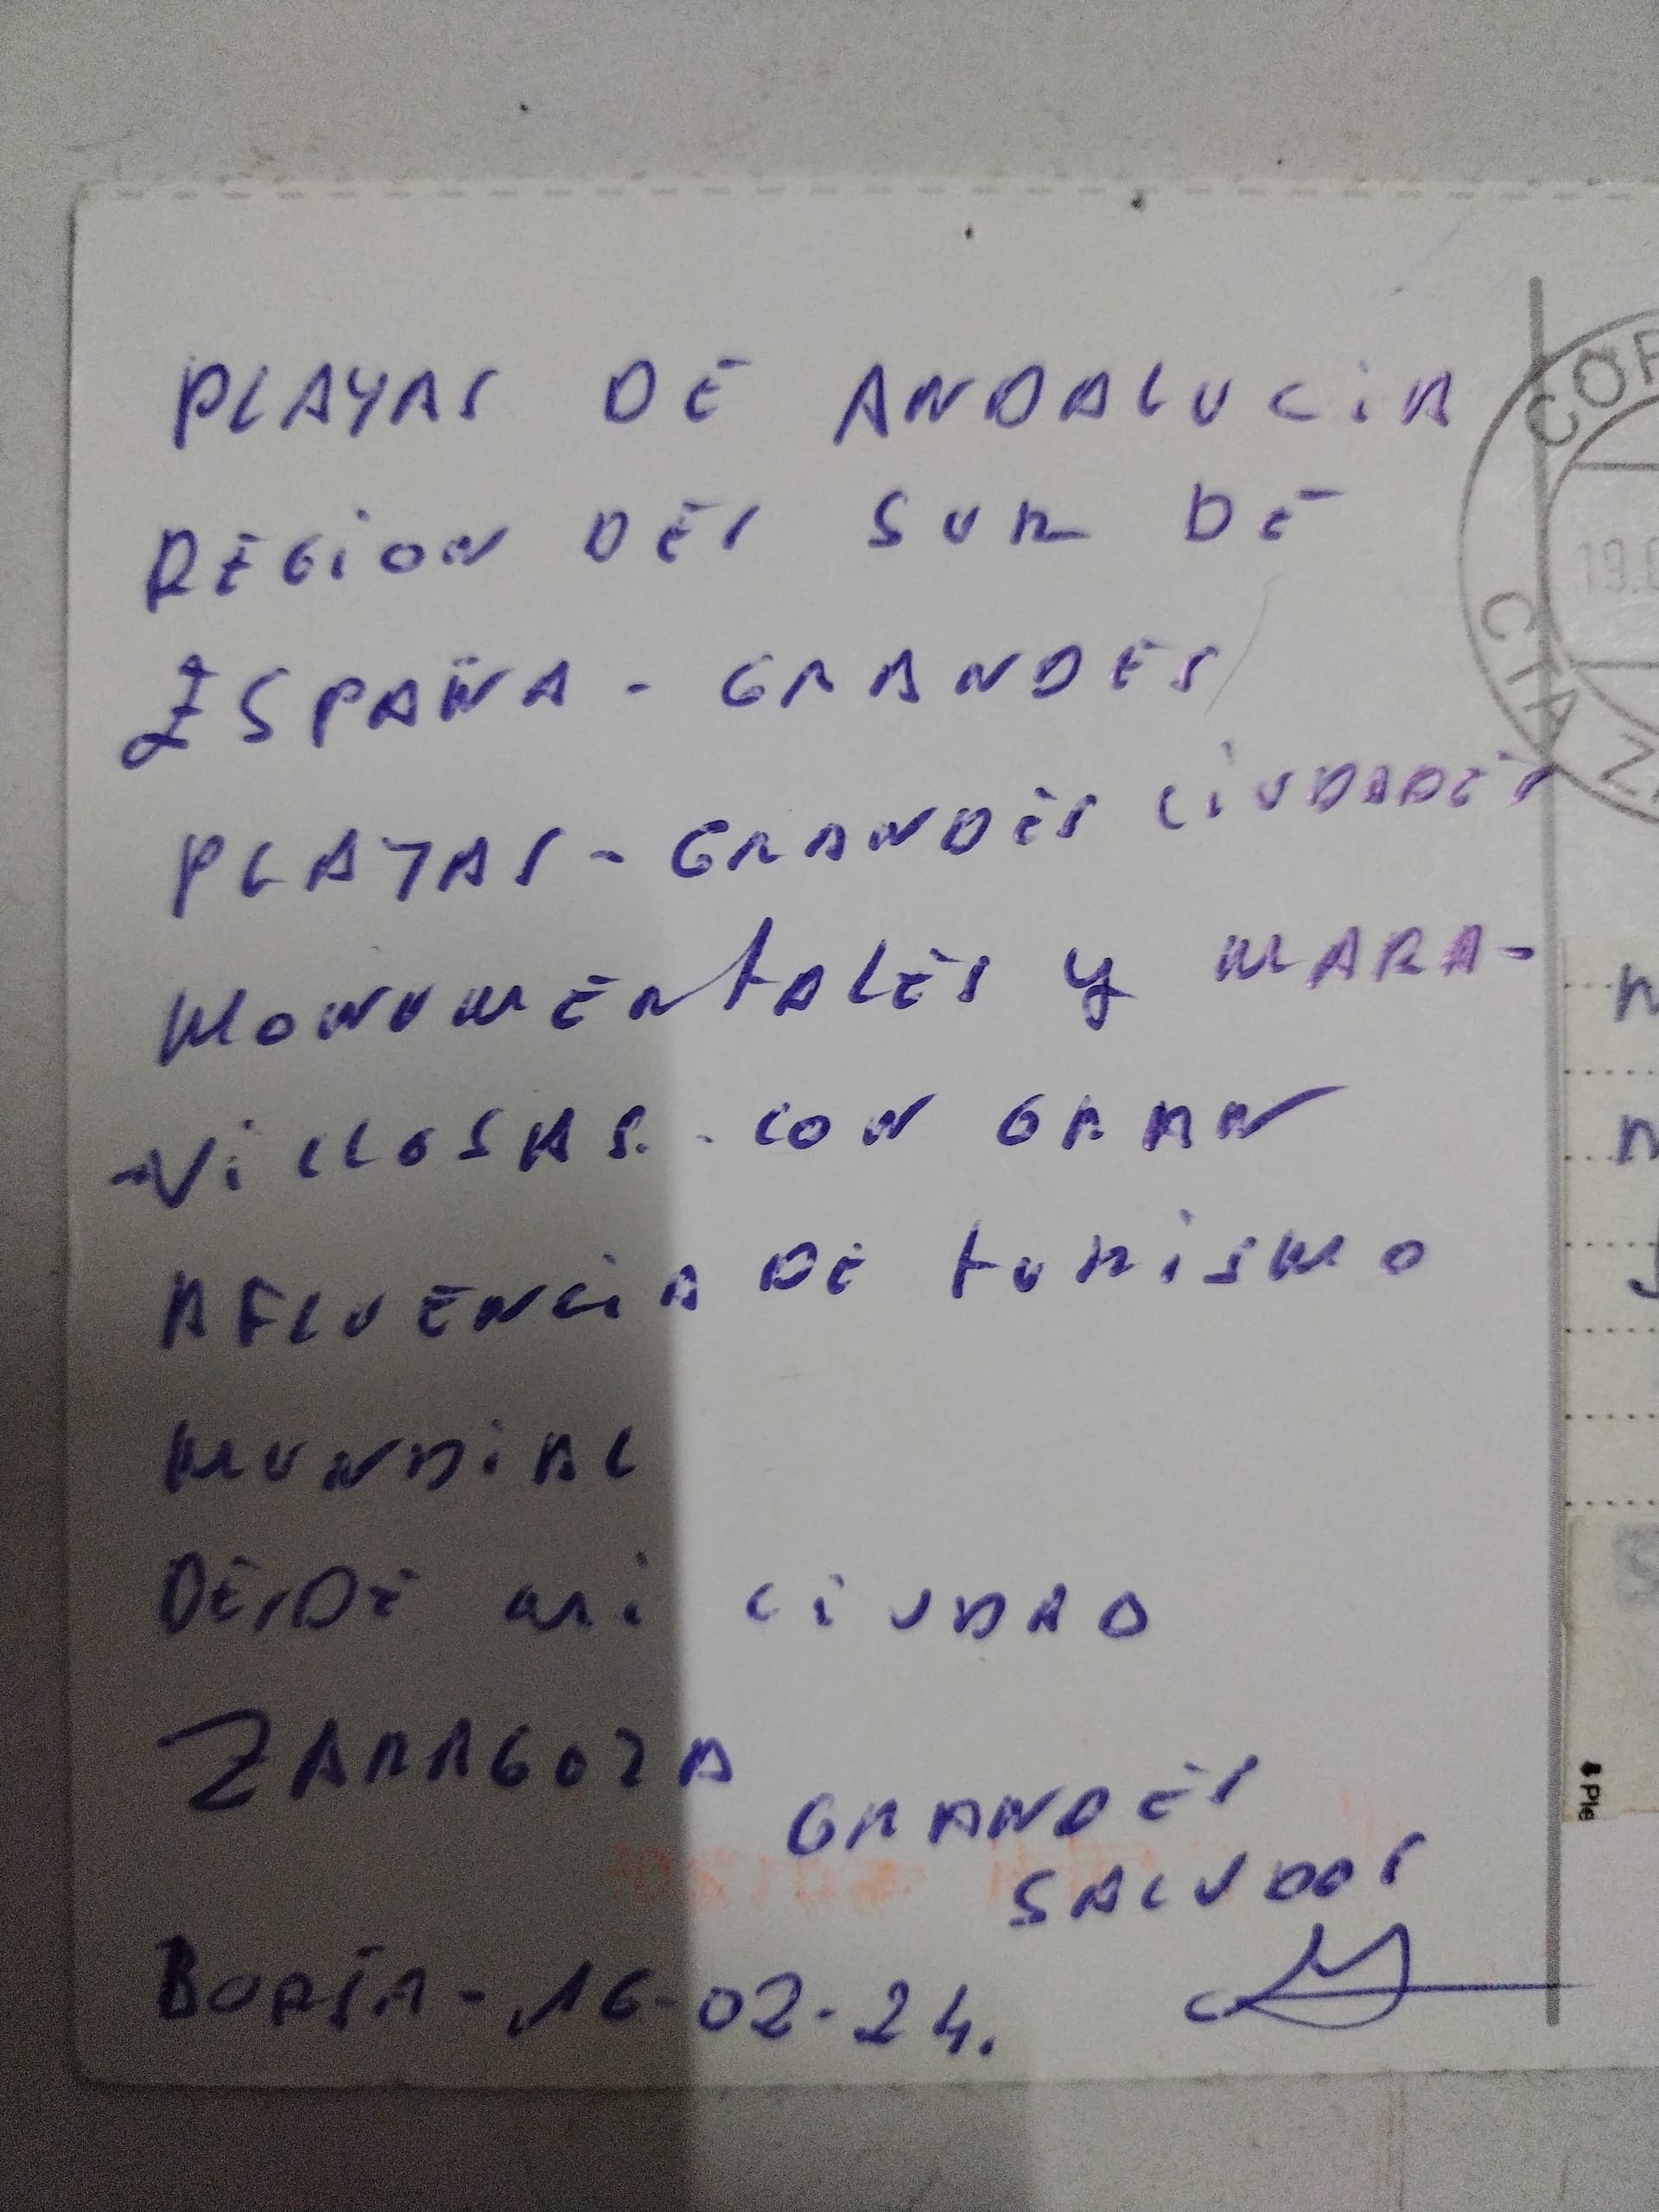 PLAYAS DE ANDALUCiA
REGiON DEL SUR DE
ESPAÑA - GRANDES
PLAYAS - GRANDES CiUDADES
MONUMENTALES y MARA-
-ViLLOSAS. - CON GRAN
AFLUENCiA DE tURiSMO
MUNDiAL
DESDE Mi CiUDAD
ZARAGOZA
GRANDES
SALUDOS
BORJA - 16-02-24.
COR
19.0
CTA
Z
8 Ple